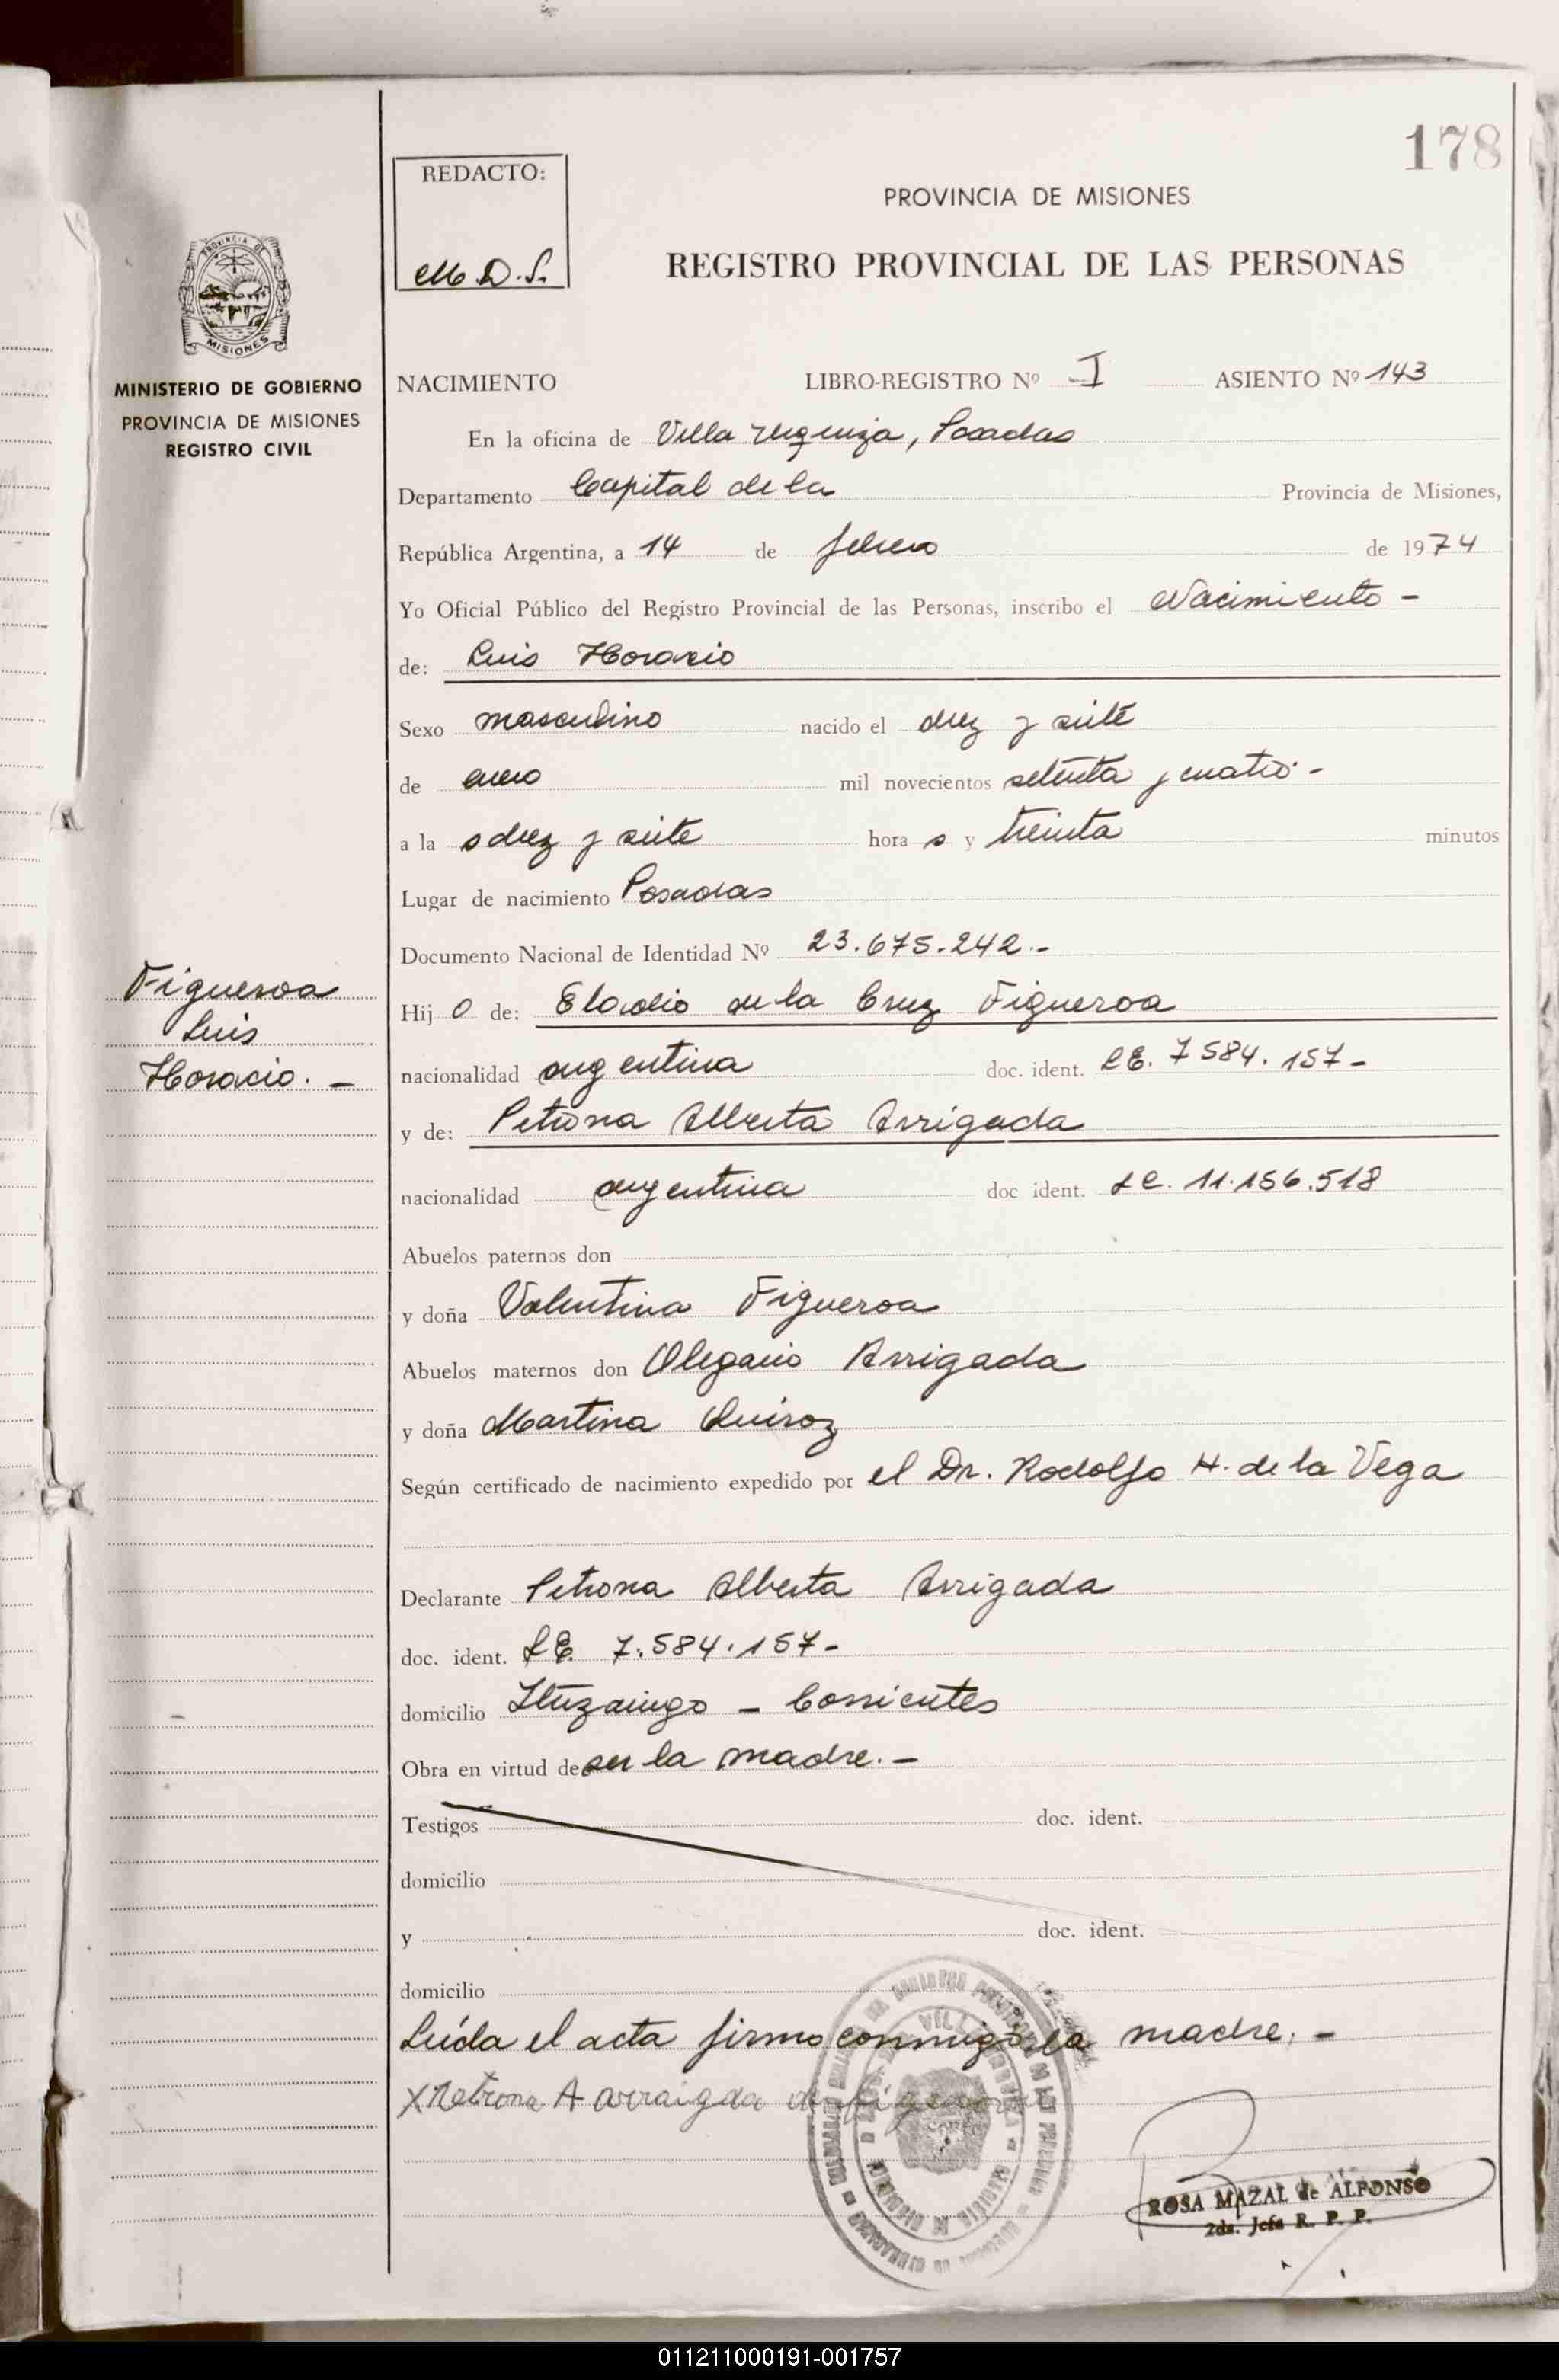 178
REDACTO:
M.D.S.
PROVINCIA DE MISIONES
REGISTRO PROVINCIAL DE LAS PERSONAS
PROVINCIA DE
MISIONES
MINISTERIO DE GOBIERNO
PROVINCIA DE MISIONES
REGISTRO CIVIL
NACIMIENTO LIBRO-REGISTRO Nº I ASIENTO Nº 143
En la oficina de Villa Urquiza, Posadas
Departamento Capital de la Provincia de Misiones,
República Argentina, a 14 de febrero de 1974
Yo Oficial Público del Registro Provincial de las Personas, inscribo el Nacimiento -
de: Luis Horacio
Sexo masculino nacido el diez y siete
de enero mil novecientos setenta y cuatro -
a la s diez y siete hora s y treinta minutos
Lugar de nacimiento Posadas
Documento Nacional de Identidad Nº 23.675.242.-
Figueroa
Luis
Horacio. -
Hij o de: Eladio de la Cruz Figueroa
nacionalidad argentina doc. ident. LE. 7584.157-
y de: Petrona Alberta Arrigada
nacionalidad argentina doc ident. LC. 11.156.518
Abuelos paternos don
y doña Valentina Figueroa
Abuelos maternos don Olegario Arrigada
y doña Martina Quiroz
Según certificado de nacimiento expedido por el Dr. Rodolfo H. de la Vega
Declarante Petrona Alberta Arrigada
doc. ident. LE. 7.584.157-
domicilio Ituzaingo - Corrientes
Obra en virtud de ser la madre. -
Testigos doc. ident.
domicilio
y doc. ident.
domicilio
Leída el acta firmo conmigo la madre. -
X Petrona A arraigda de figueroa
ROSA MAZAL de ALFONSO
2da. Jefa R. P. P.
011211000191-001757